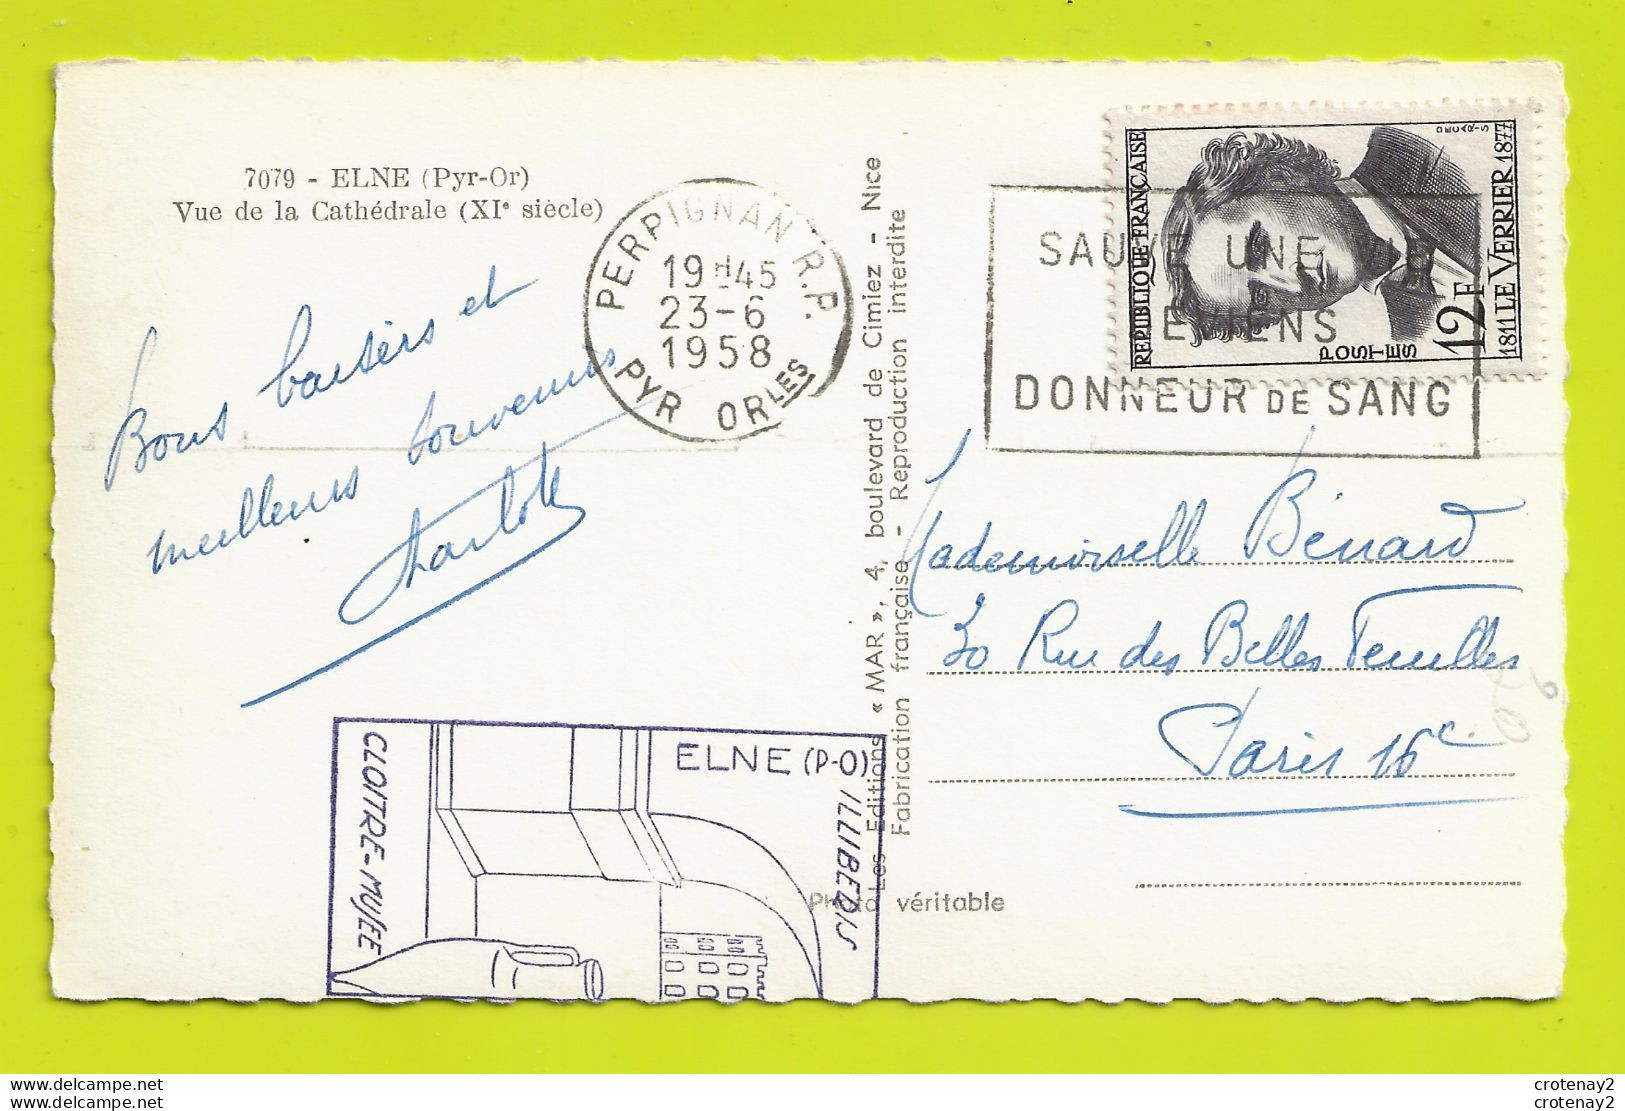 7079 - ELNE (Pyr-Or)
Vue de la Cathédrale (XIe siècle)
Bons baisers et
meilleurs souvenirs
Charlotte
PERPIGNAN R.P.
19H45
23-6
1958
PYR ORLES
SAUVE UNE VIE
DEVIENS
DONNEUR DE SANG
REPUBLIQUE FRANÇAISE
POSTES
12F
1811 LE VERRIER 1877
DECARIS
Les Editions « MAR », 4, boulevard de Cimiez - Nice
Fabrication française - Reproduction interdite
Photo véritable
Mademoiselle Bénard
30 Rue des Belles Feuilles
Paris 16e
ELNE (P-O)
ILLIBERIS
CLOITRE-MUSÉE
www.delcampe.net
www.delcampe.net
crotenay2
crotenay2